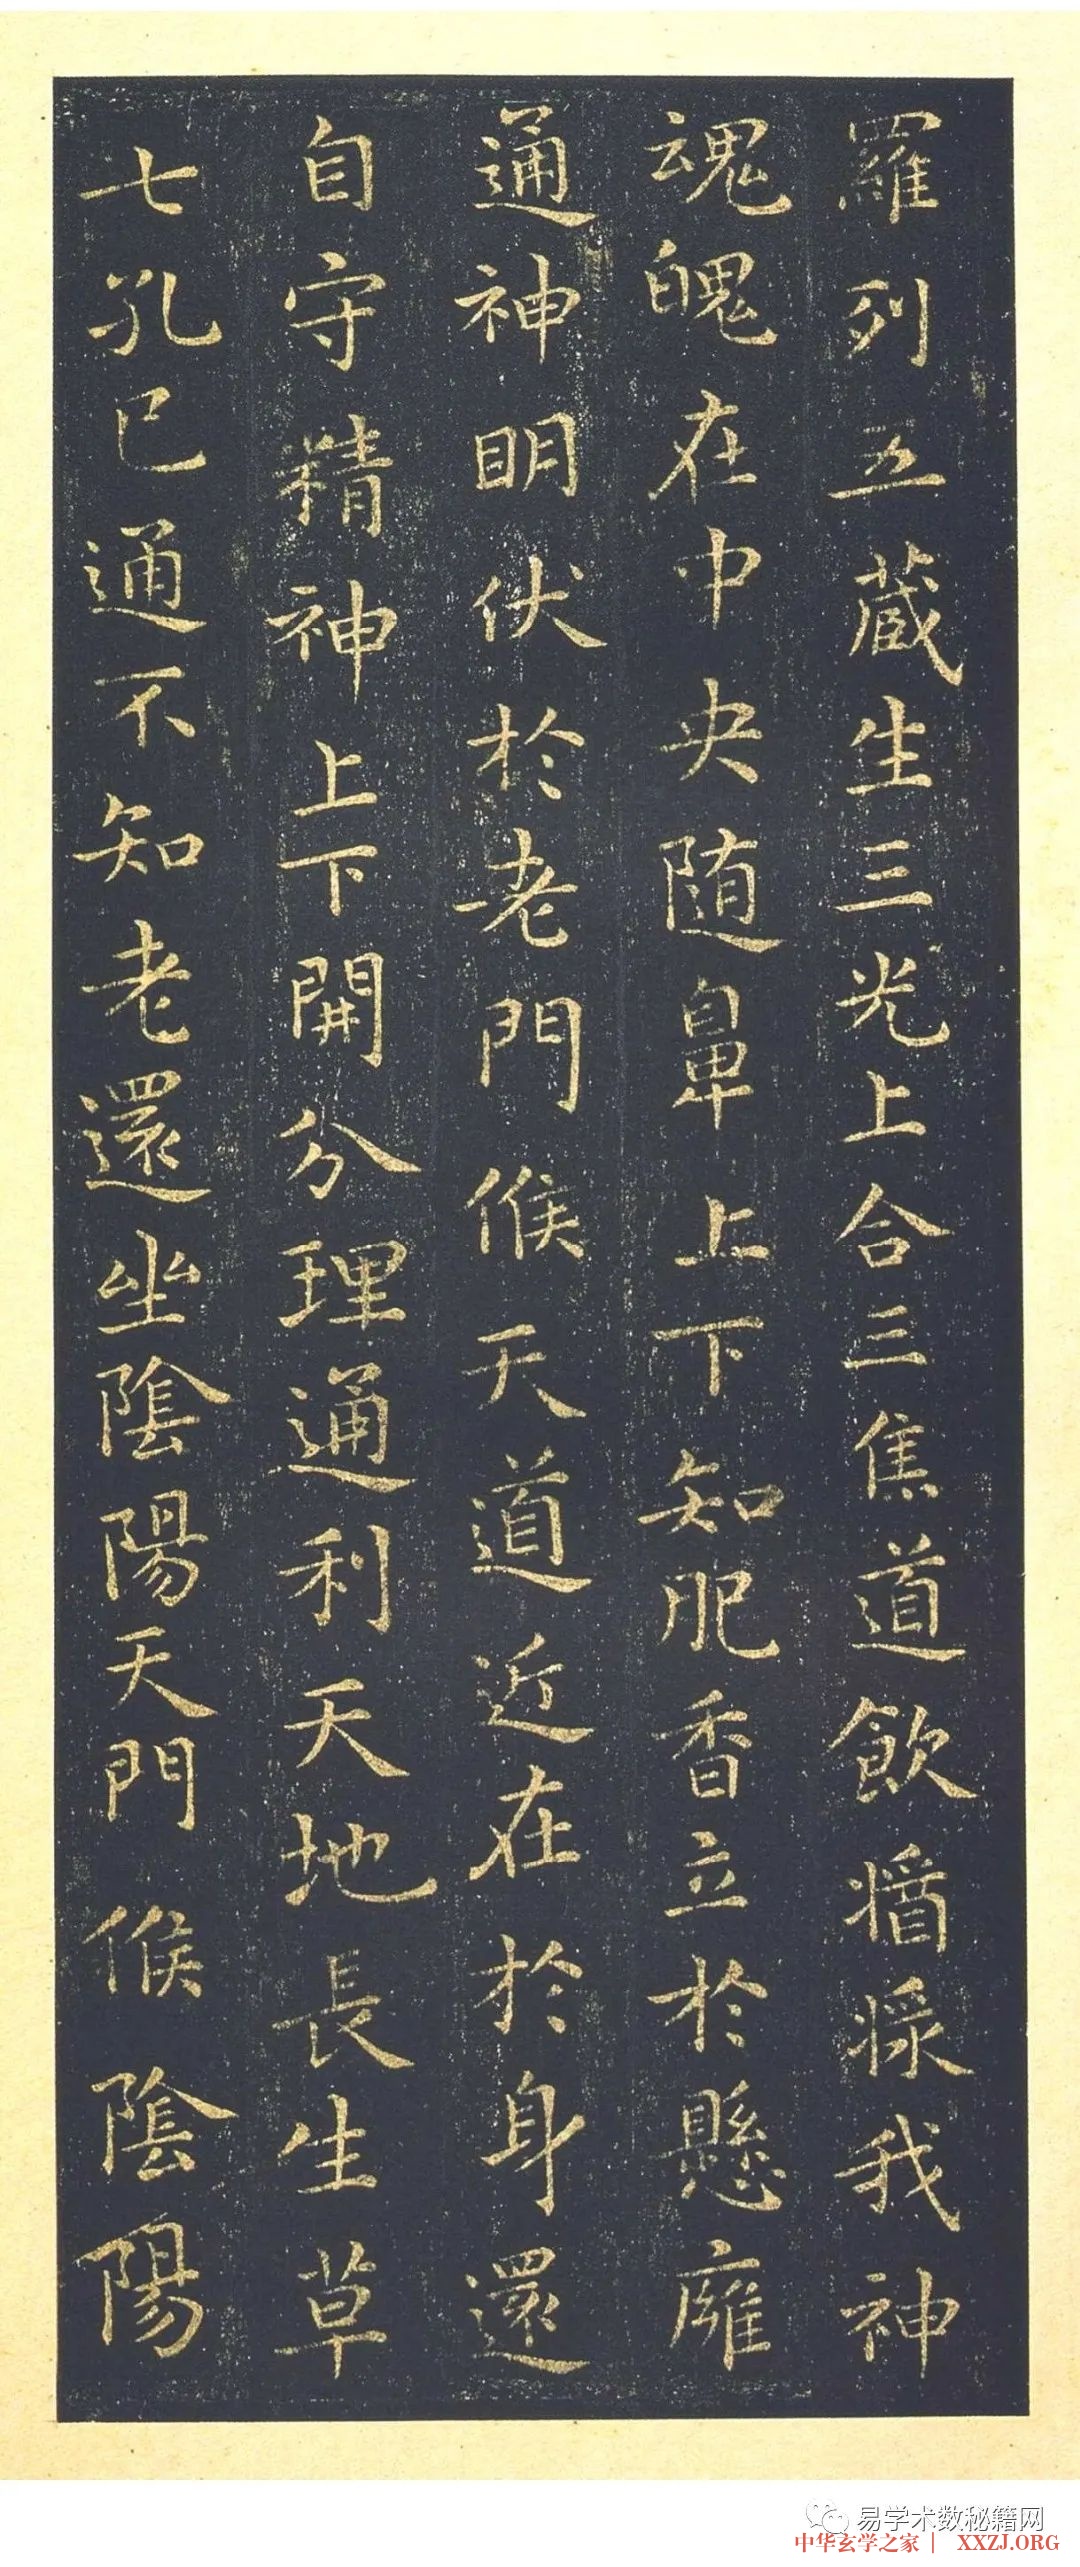 羅列五藏生三光上合三焦道飲漿我神
魂魄在中央随鼻上下知肥香立於懸廱
通神明伏於老門候天道近在於身還
自守精神上下開分理通利天地長生草
七孔已通不知老還坐陰陽天門候陰陽
易学术数秘籍网
中华玄学之家 | XXZJ.ORG